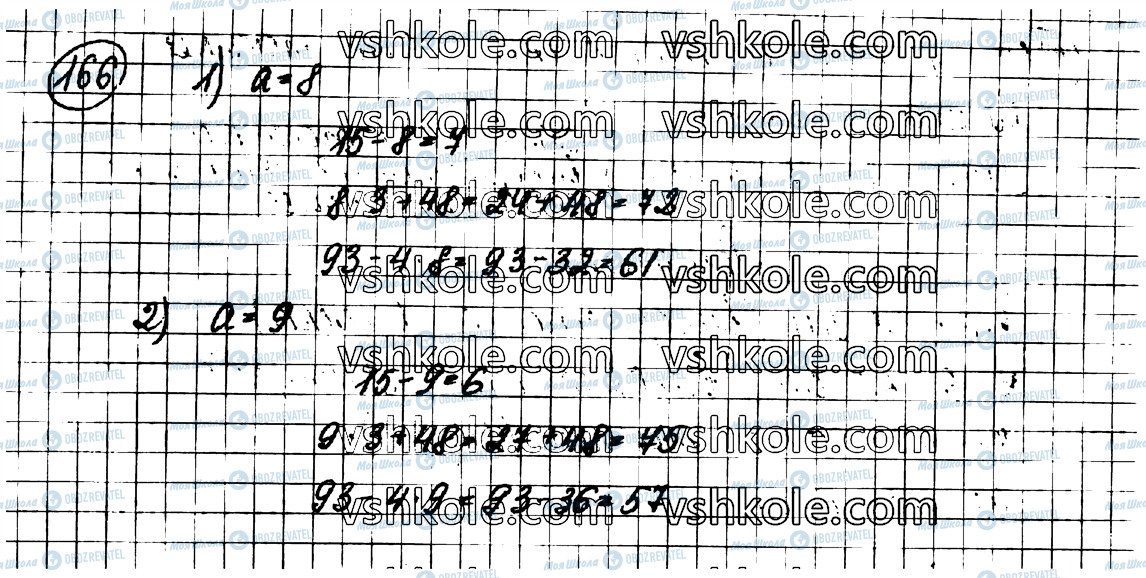 166 1) a = 8
15 - 8 = 7
8 · 3 + 48 = 24 + 48 = 72
93 - 4 · 8 = 93 - 32 = 61
2) a = 9
15 - 9 = 6
9 · 3 + 48 = 27 + 48 = 75
93 - 4 · 9 = 93 - 36 = 57
vshkole.com vshkole.com
vshkole.com vshkole.com
vshkole.com vshkole.com
vshkole.com vshkole.com
vshkole.com vshkole.com
vshkole.com vshkole.com
vshkole.com vshkole.com
Моя Школа OBOZREVATEL